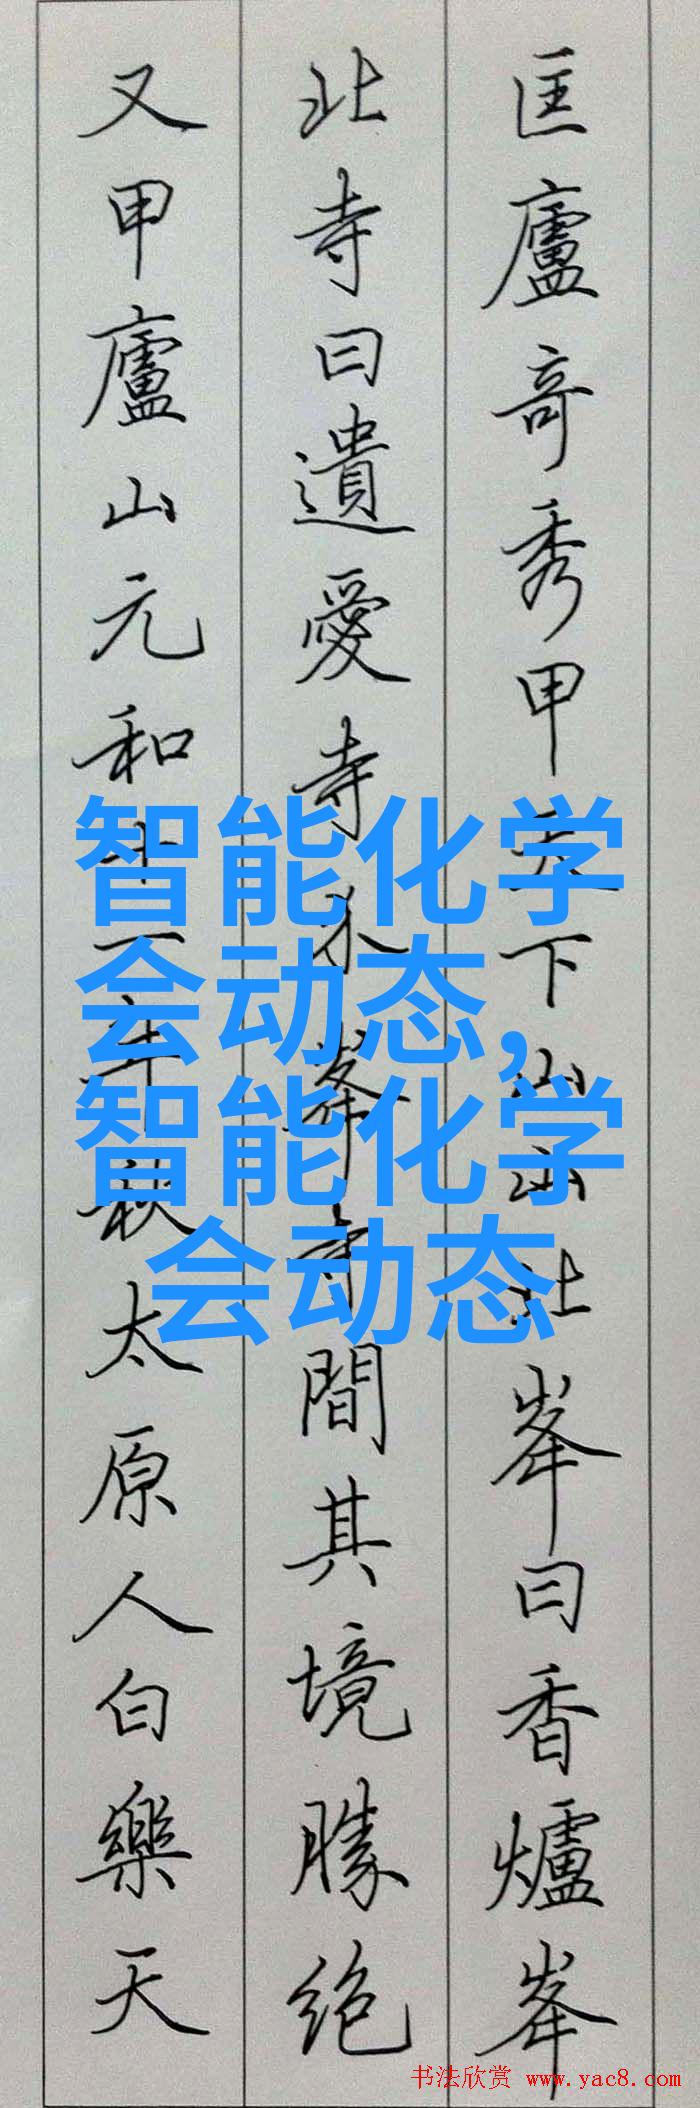 匡廬竒秀甲天下山山北峯曰香爐峯
北寺曰遺愛寺介峯寺間其境勝絶
又甲廬山元和十一年秋太原人白樂天
智能化学
会动态,
智能化学
会动态
书法欣赏 www.yac8.com